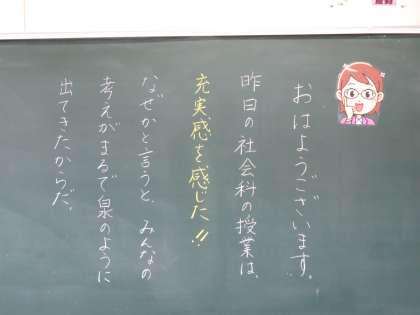 おはようございます。
昨日の社会科の授業は、
充実感を感じた!!
なぜかと言うと、みんなの
考えがまるで泉のように
出てきたからだ。